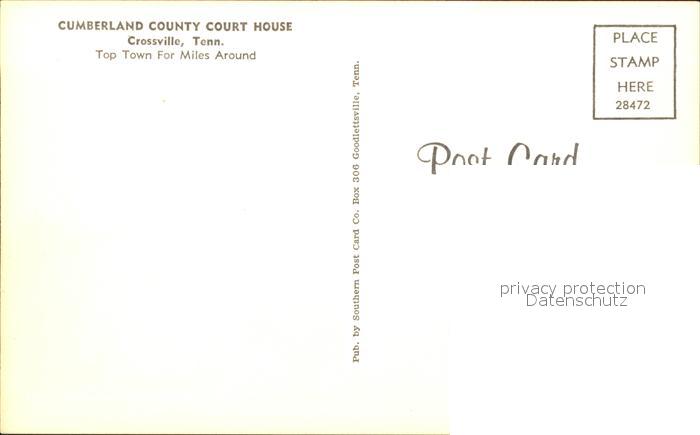 CUMBERLAND COUNTY COURT HOUSE
Crossville, Tenn.
Top Town For Miles Around
Pub. by Southern Post Card Co. Box 306 Goodlettsville, Tenn.
PLACE
STAMP
HERE
28472
Post Card
privacy protection
Datenschutz